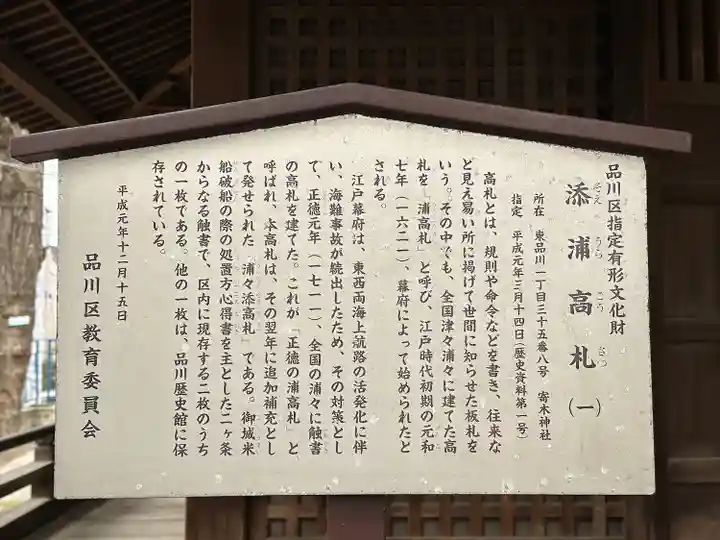 品川区指定有形文化財
添浦高札(一)
そえ うら こう さつ
所在 東品川一丁目三十五番八号 寄木神社
指定 平成元年三月十四日(歴史資料第一号)
高札とは、規則や命令などを書き、往来な
ど見え易い所に掲げて世間に知らせた板札を
いう。その中でも、全国津々浦々に建てた高
札を「浦高札」と呼び、江戸時代初期の元和
七年(一六二一)、幕府によって始められたと
される。
江戸幕府は、東西両海上航路の活発化に伴
い、海難事故が続出したため、その対策とし
て、正徳元年(一七一一)、全国の浦々に触書
の高札を建てた。これが「正徳の浦高札」と
呼ばれ、本高札は、その翌年に追加補充とし
て発せられた「浦々添高札」である。御城米
船破船の際の処置方心得書を主とした二ヶ条
からなる触書で、区内に現存する二枚のうち
の一枚である。他の一枚は、品川歴史館に保
存されている。
平成元年十二月十五日
品川区教育委員会